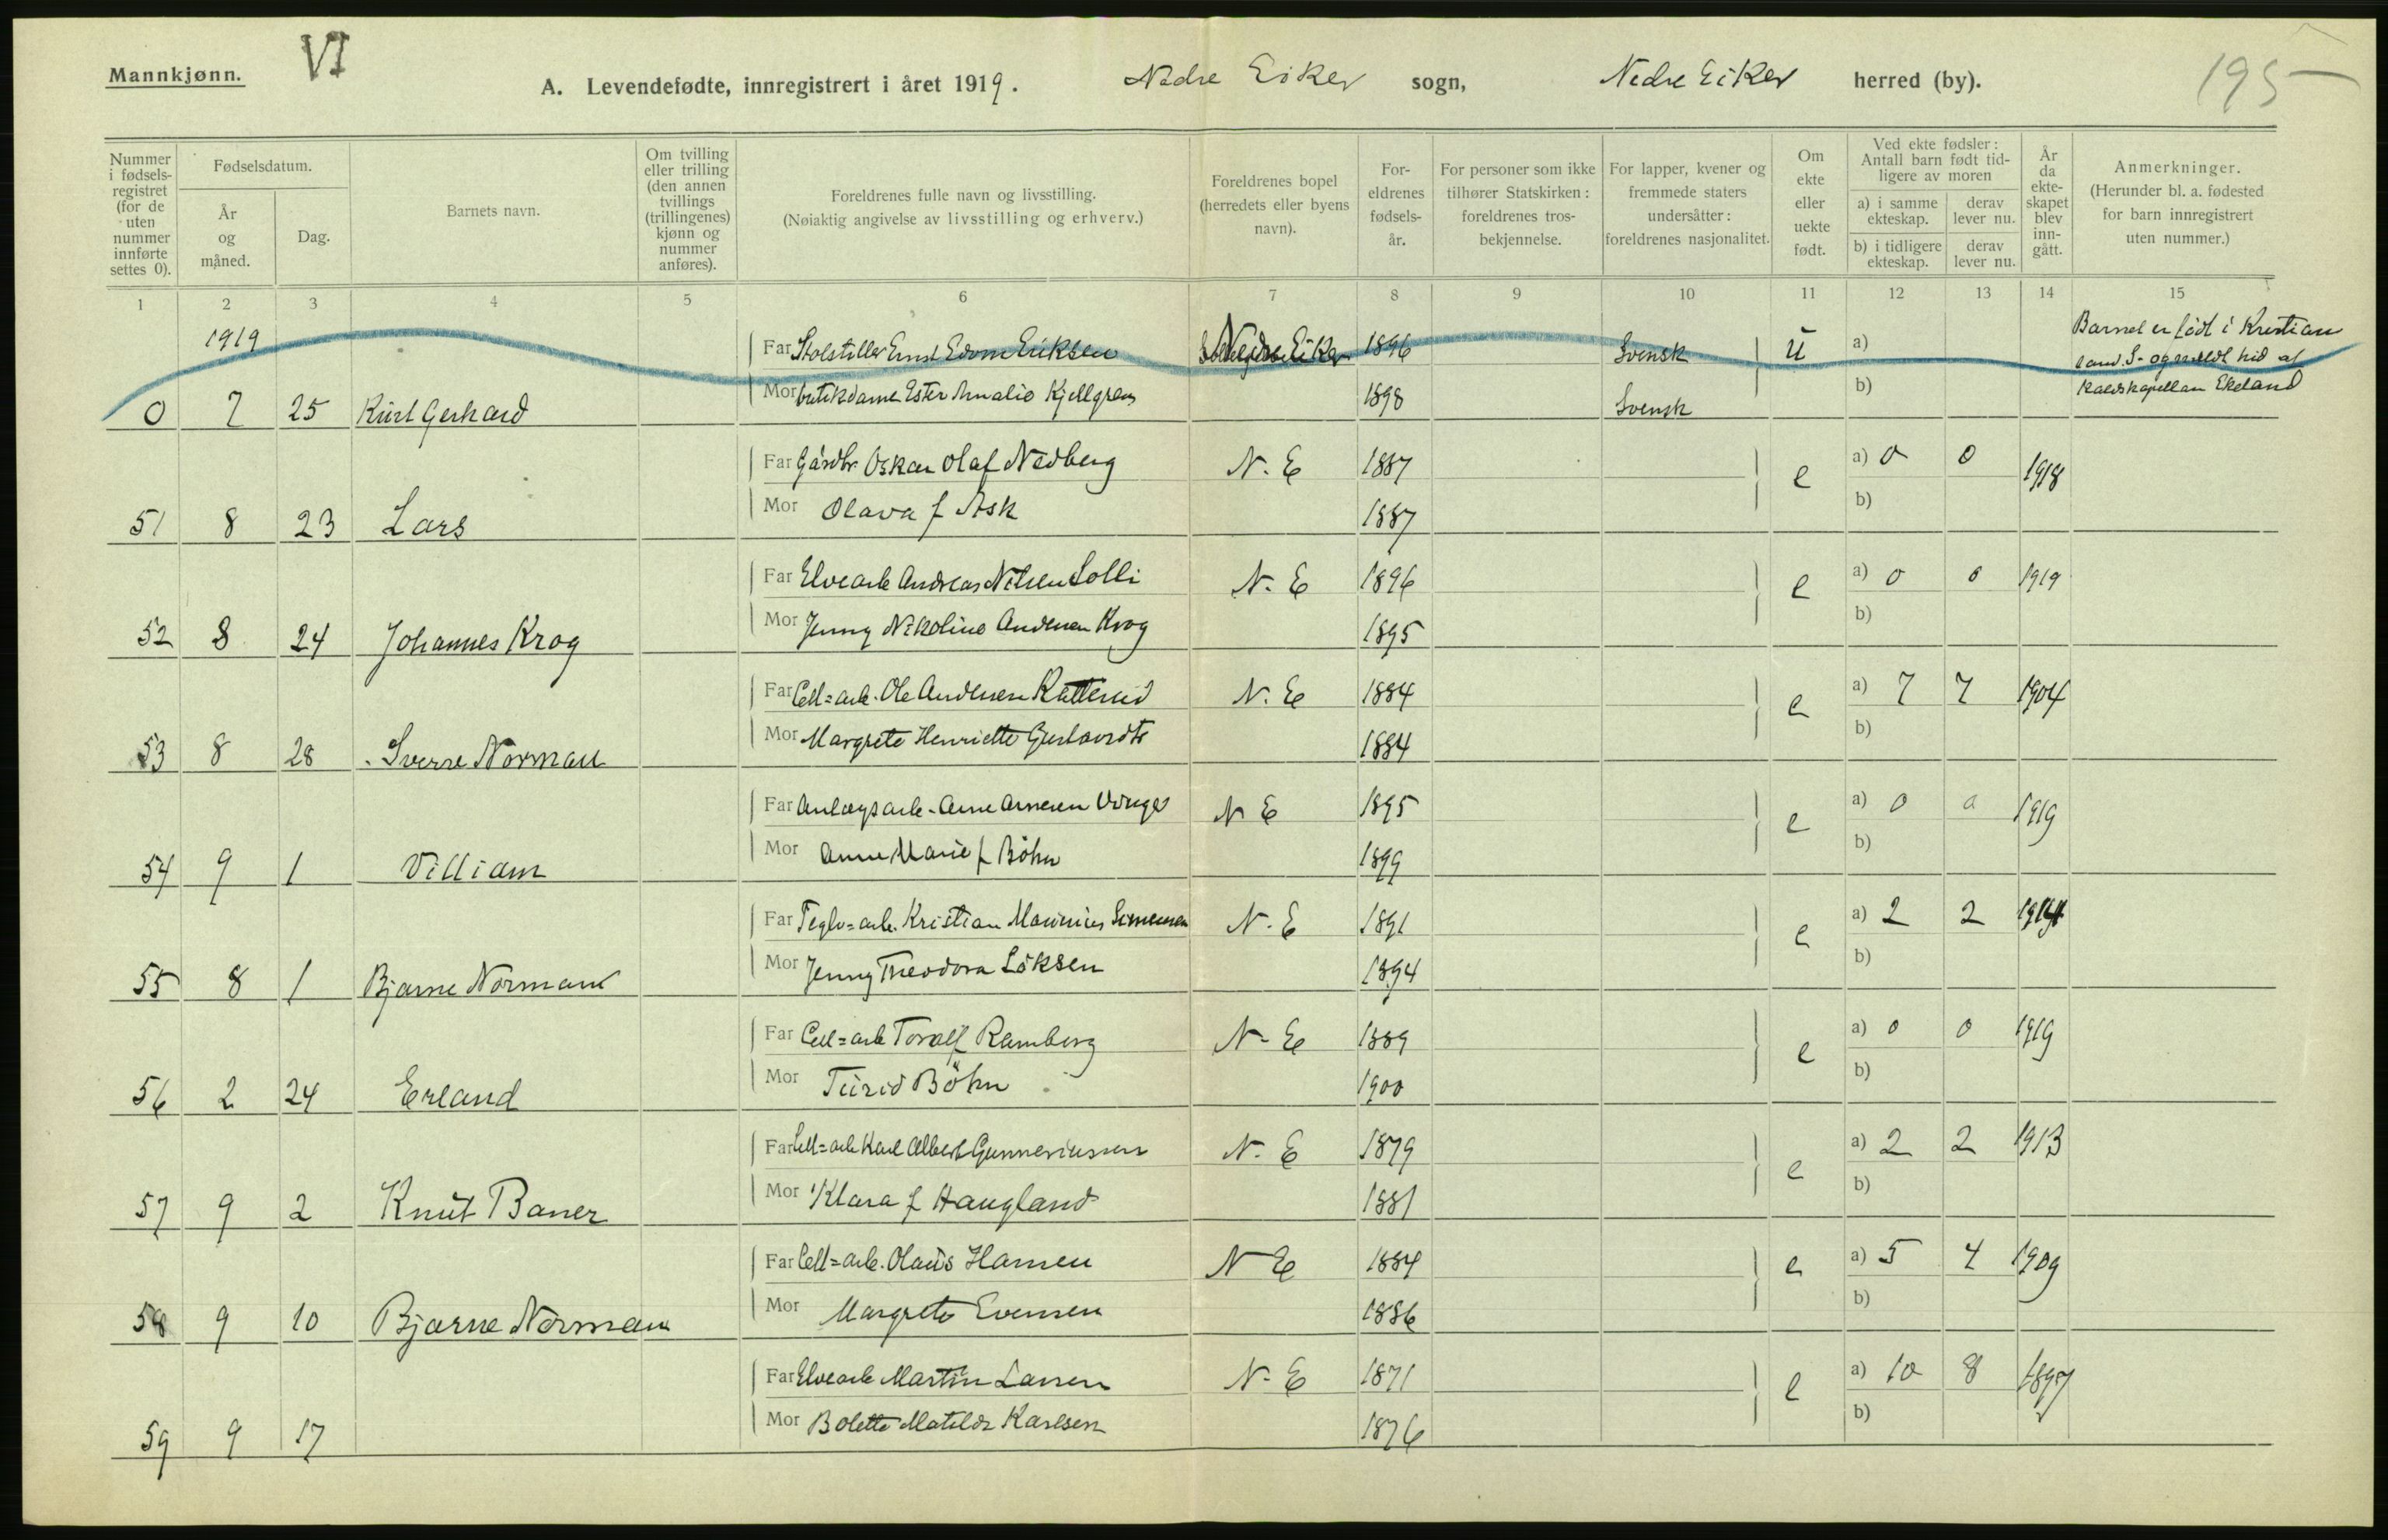 Mannkjønn.
VI
A. Levendefødte, innregistrert i året 1919.
Nedre Eiker sogn,
Nedre Eiker herred (by).
195
Nummer i fødsels-registret (for de uten nummer innførte settes 0).
Fødselsdatum.
År og måned.
Dag.
Barnets navn.
Om tvilling eller trilling (den annen tvillings (trillingenes) kjønn og nummer anføres).
Foreldrenes fulle navn og livsstilling.
(Nøiaktig angivelse av livsstilling og erhverv.)
Foreldrenes bopel (herredets eller byens navn).
For-eldrenes fødsels-år.
For personer som ikke tilhører Statskirken: foreldrenes tros-bekjennelse.
For lapper, kvener og fremmede staters undersåtter: foreldrenes nasjonalitet.
Om ekte eller uekte født.
Ved ekte fødsler: Antall barn født tid-ligere av moren
a) i samme ekteskap.
derav lever nu.
b) i tidligere ekteskap.
derav lever nu.
År da ekte-skapet blev inn-gått.
Anmerkninger.
(Herunder bl. a. fødested for barn innregistrert uten nummer.)
1 2 3 4 5 6 7 8 9 10 11 12 13 14 15
1919
Far Ernst Edvin Eriksen Nedre Eiker 1896 Svensk U a)
Barnet er født i Kristian
sand S. og meldt hid af
Ekeland
Mor butikdame Ester Amalie Kjellgren 1898 Svensk b)
0 7 25 Kurt Gerhard
Far Gårdbr. Oskar Olaf Nedberg N. E 1887 e a) 0 0 1918
Mor Olava f Ask 1887 b)
51 8 23 Lars
Far Elvearb Andreas Nilsen Solli N. E 1896 e a) 0 0 1919
Mor Jenny Nikoline Andersen Krog 1895 b)
52 8 24 Johannes Krog
Far Cell=arb. Ole Andersen N. E 1884 e a) 7 7 1904
Mor Margrete Henriette 1884 b)
53 8 28 Sverre Norman
Far Anlægsarb. Arne Arnesen N E 1895 e a) 0 0 1919
Mor Anne Marie f Böhn 1899 b)
54 9 1 Villiam
Far Teglv=arb. Kristian Marinius Simensen N. E 1891 e a) 2 2 1914
Mor Jenny Theodora Löksen 1894 b)
55 8 1 Bjarne Normann
Far Cell=arb Toralf Ramberg N. E 1889 e a) 0 0 1919
Mor Turid Böhn 1900 b)
56 2 24 Erland
Far Cell=arb Karl Albert Gunneriussen N. E 1879 e a) 2 2 1913
Mor Klara f Haugland 1881 b)
57 9 2 Knut Baner
Far Cell=arb. Olaus Hansen N E 1884 e a) 5 4 1909
Mor Margrete Evensen 1886 b)
58 9 10 Bjarne Norman
Far Elvearb Martin Larsen N. E 1871 e a) 10 8 1897
Mor Bolette Matilde Karlsen 1876 b)
59 9 17